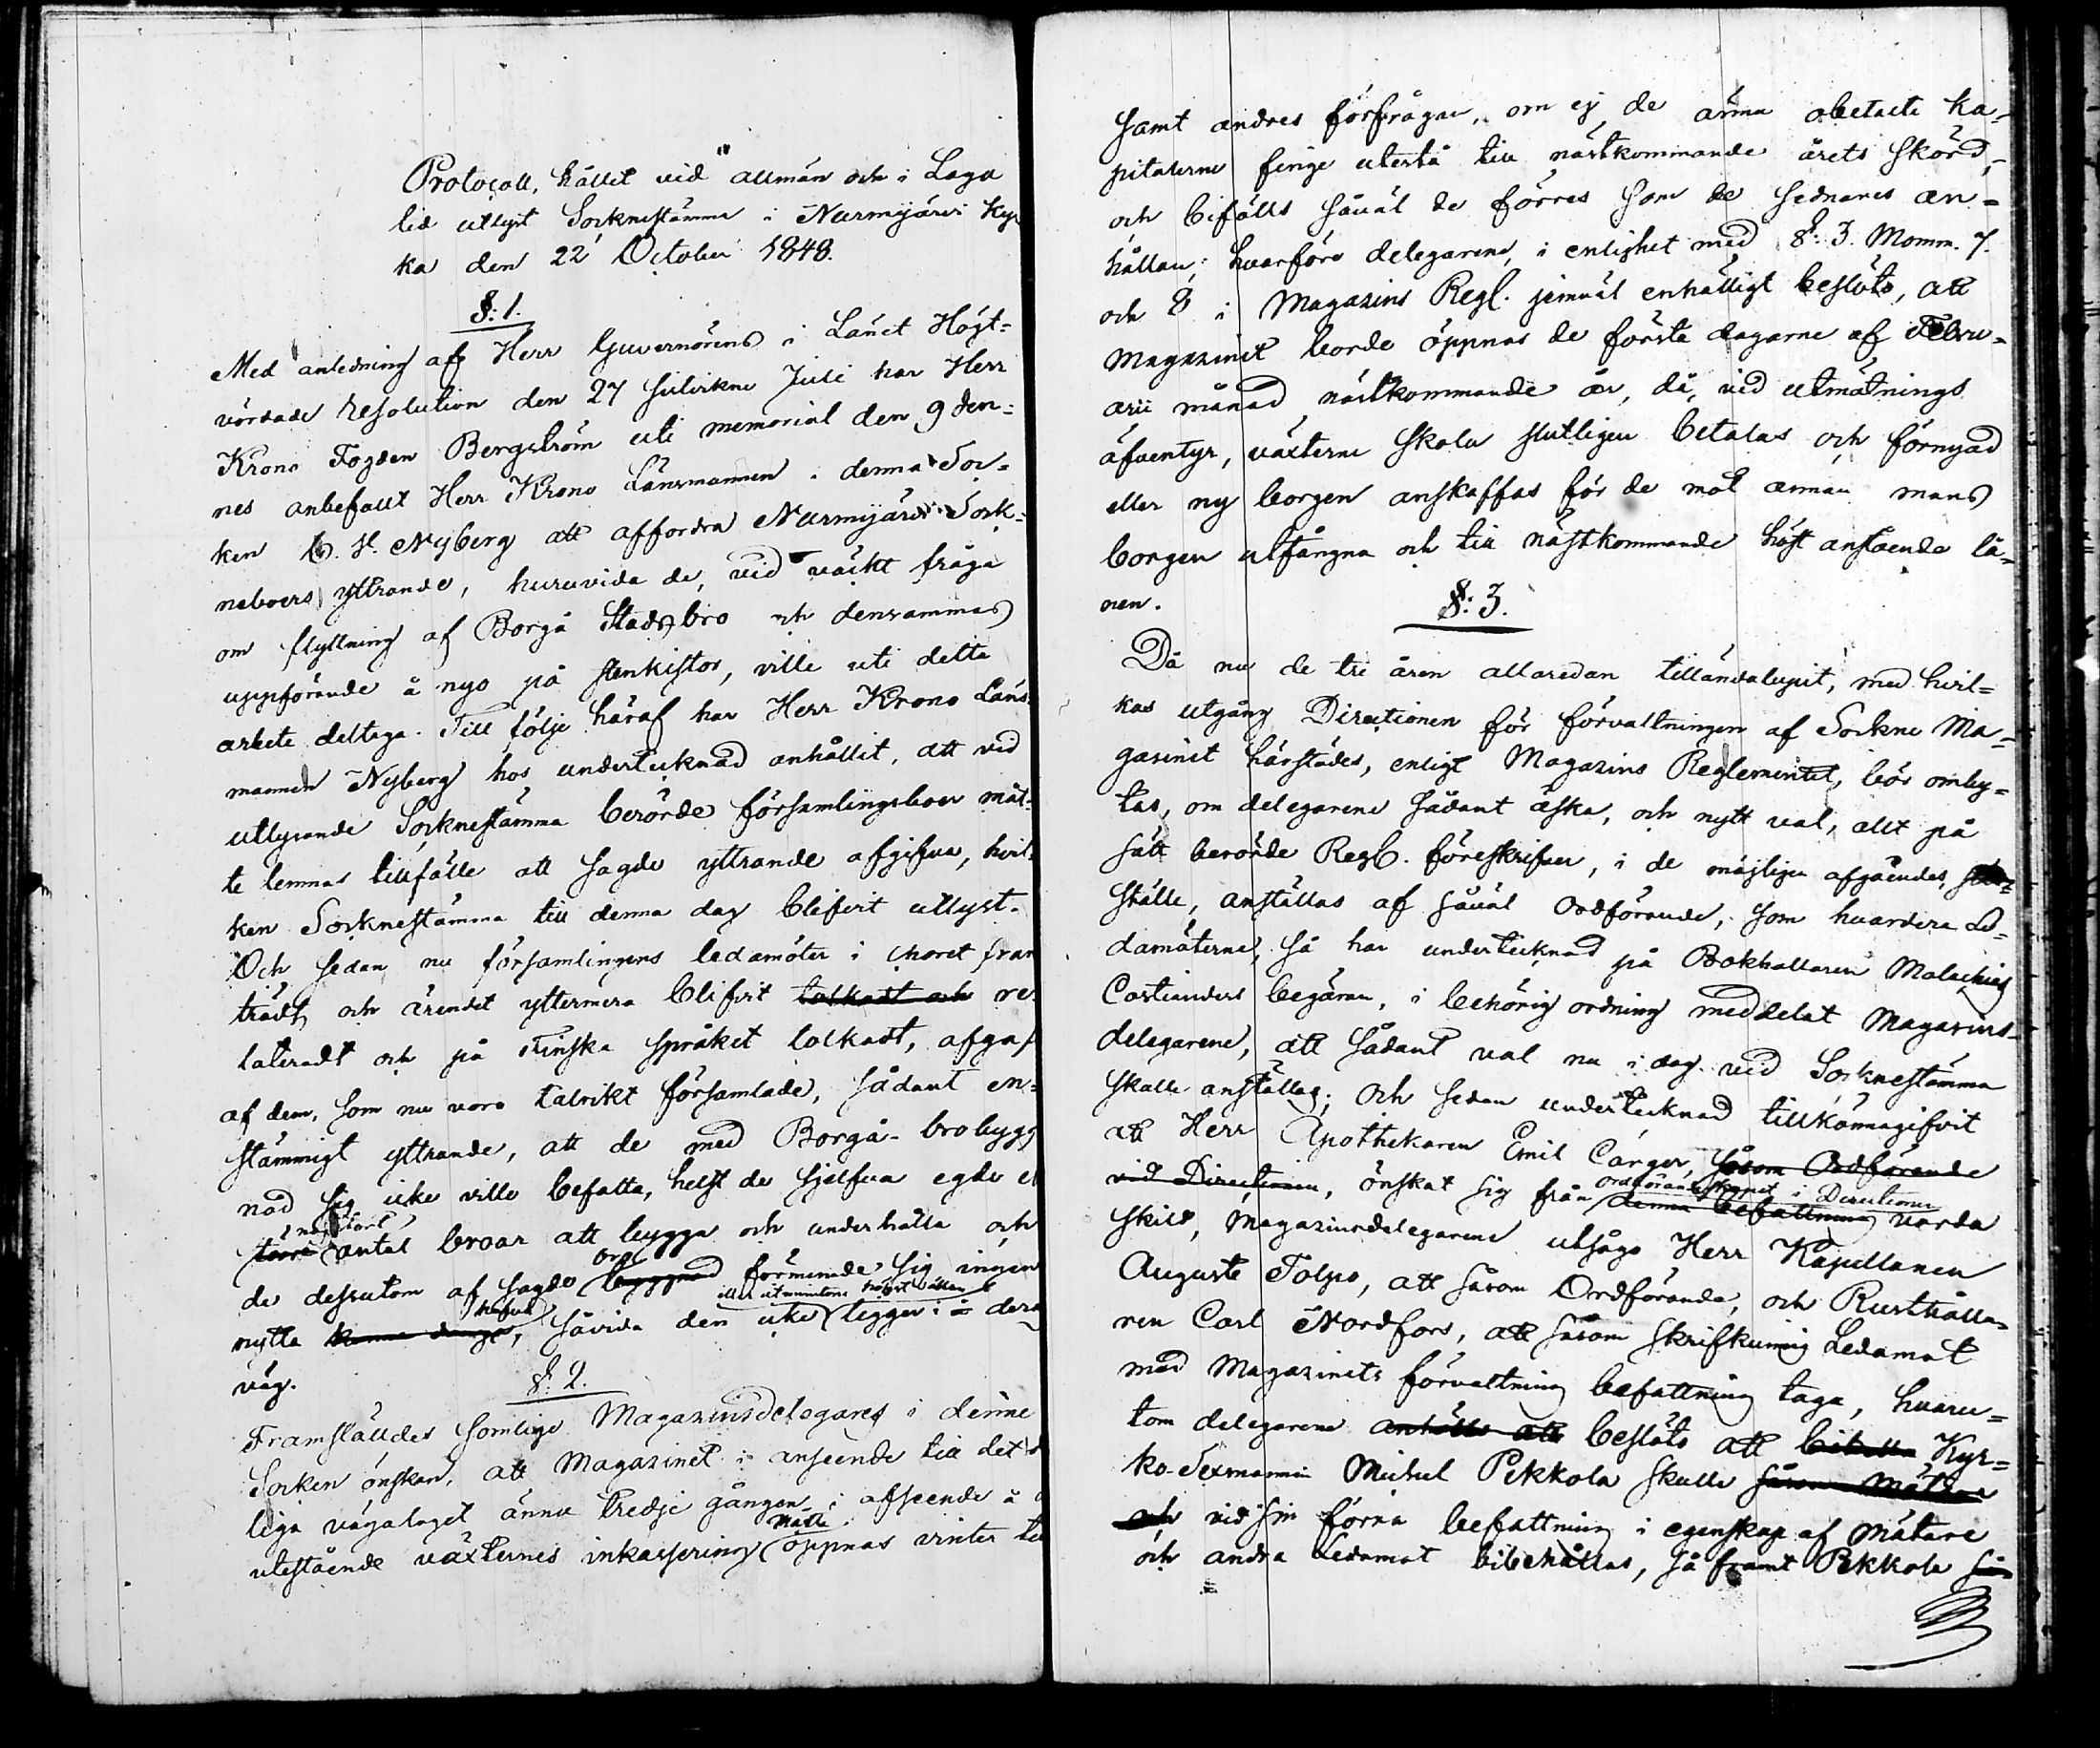 Protocoll, hållet vid allmän och i Laga
tid utlyst Socknestämma i Nurmijärvi Kyr
ka den 22 October 1848.
§: 1.
Med anledning af Herr Guvernörens i Länet Högt=
vördade resolution den 27 sistvikne Juli har Herr
Krono Fogden Bergström uti memorial den 9 den=
nes anbefallt Herr Krono Länsmannen i denna Soc=
ken G. H. Nyberg att affordra Nurmijärvi Sock=
neboers yttrande, huruvida de, vid väckt fråga
om flyttning af Borgå Stads bro och densammas
uppförande å nyo på stenkistor, ville uti detta
arbete deltaga. Till följe häraf har Herr Krono Läns
mannen Nyberg hos undertecknad anhållit, att vid
utlysande Socknestämma berörde församlingsboer måt=
te lemnas tillfälle att sagde yttrande afgifva, hvil=
ken Socknestämma till denna dag blifvit utlyst.
Och sedan nu församlingens ledamöter i choret fram
trädt och ärendet yttermera blifvit tolkadt och re=
lateradt och på Finska språket tolkadt, afgaf
af dem, som nu voro talrikt församlade, sådant en=
stämmigt yttrande, att de med Borgå-brobygg
nad sig icke ville befatta, helst de sjelfva egde et
antal broar att bygga och underhålla och
de dessutom af sagde bro byggnad förmenade sig ingen
nytta hafva, såvida den icke ligger i deras
väg.
§: 2.
Framställdes somlige Magazinsdelegares i denne
Socken önskan, att Magazinet i anseende till det
liga vägalaget ännu tredje gången i afseende å
utestående växternes inkassering måtte öppnas vinter tid
samt andres förfrågan, om ej de ännu obetalte ka=
pitalerne finge utestå till nästkommande årets skörd,
och bifölls såväl de förres som de sednares an=
hållan; hvarföre delegarene, i enlighet med §: 3. Momm. 7.
och 8 i Magazins Regl. jemväl enhälligt beslöto, att
Magazinet borde öppnas de första dagarne af Febru=
arii månad nästkommande år, då, vid utmätnings
äfventyr, växterne skola slutligen betalas och förnyad
eller ny borgen anskaffas för de mot annan mans
borgen utfångna och till nästkommande höst anstående lå=
nen.
§: 3.
Då nu de tre åren allaredan tilländalupit, med hvil=
kas utgång Directionen för förvaltningen af Sockne Ma=
gasinet härstädes, enligt Magazins Reglementet, bör omby=
tas, om delegarene sådant äska, och nytt val, allt på
sätt berörde Regl. föreskrifver, i de möjligen afgåendes,
ställe, anställas af såväl Ordförande, som hvardera Le=
damöterne, så har undertecknad på Bokhållaren Malachias
Castianders begäran, i behörig ordning meddelat Magazins=
delegarene, att sådant val nu i dag vid Socknestämma
skulle anställas; Och sedan undertecknad tillkännagifvit
att Herr Apothekaren Emil Cârger, såsom Ordförande
vid Directionen, önskat sig från ordförandskapet i Directionen denna befattning varda
skild, Magazinsdelegarene utsågo Herr Kapellanen
Auguste Tolpo, att såsom Ordförande, och Rusthålla=
ren Carl Nordfors, att såsom skrifkunnig Ledamot
med Magazinets förvaltning befattning taga, hvaru=
tom delegarene anhöllo att beslöto att bibehålla Kyr=
ko-Sexmannen Michel Pekkola skulle såsom Mätare
och vid sin förra befattning i egenskap af Mätare
och andra Ledamot bibehållas, så framt Pekkola